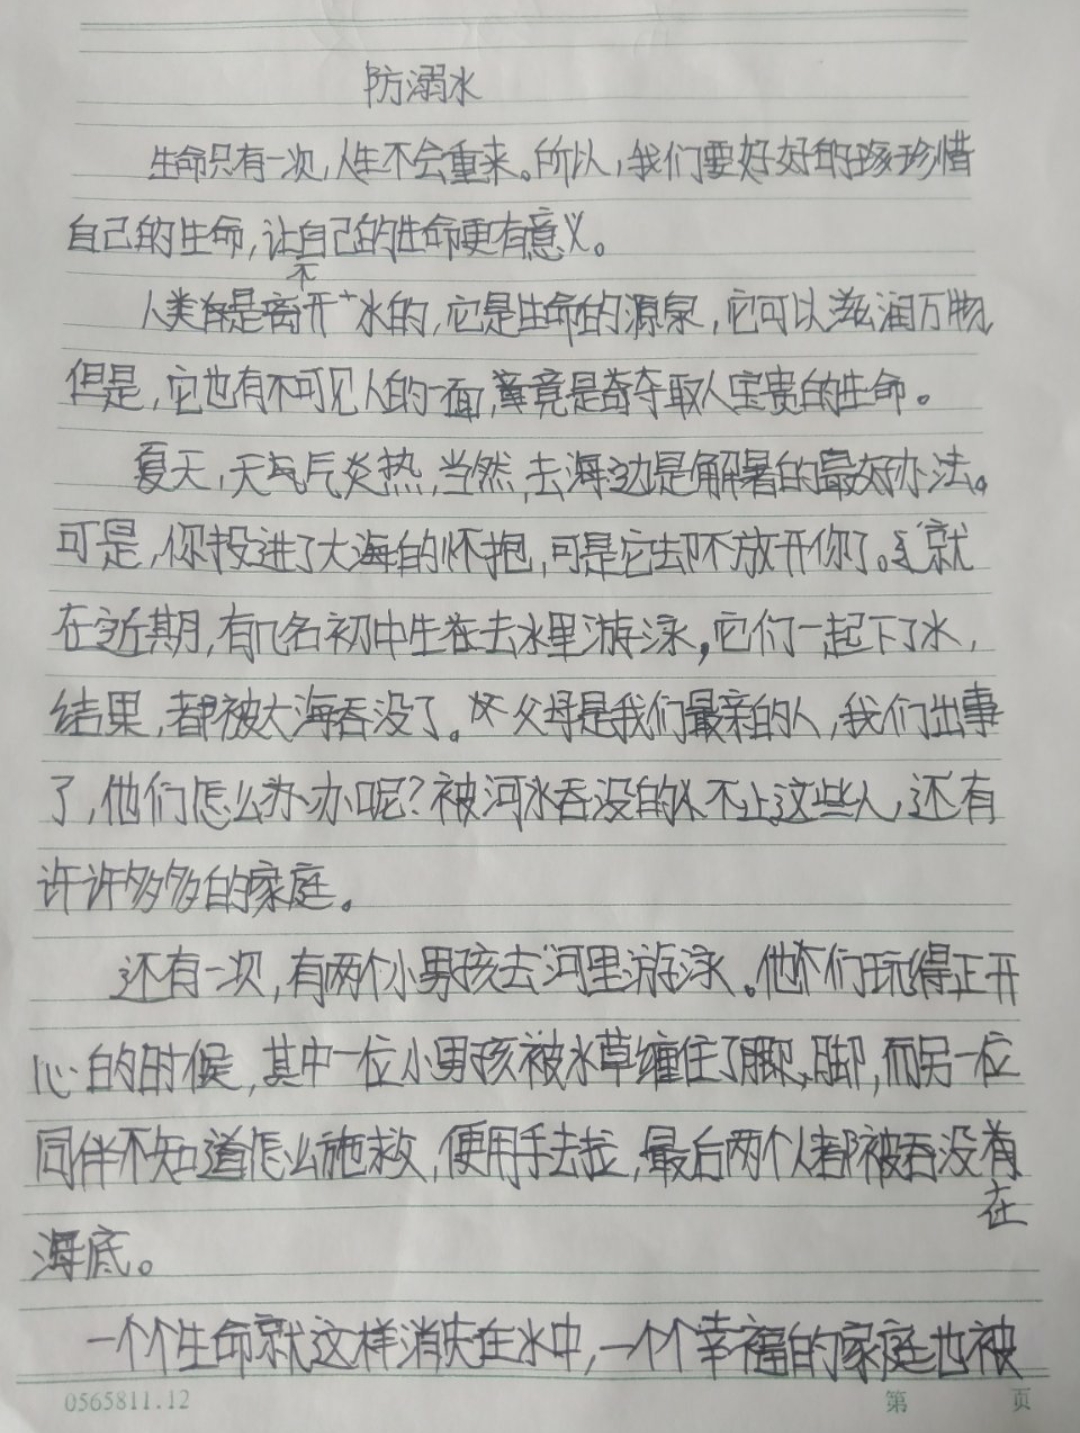 防溺水
生命只有一次,人生不会重来。所以,我们要好好的珍惜
自己的生命,让自己的生命更有意义。
不
人类是离开水的,它是生命的源泉,它可以滋润万物,
但是,它也有不可见人的一面,竟是夺取人宝贵的生命。
夏天,天气炎热,当然,去海边是解暑的最好办法。
可是,你投进了大海的怀抱,可是它却不放开你了。就
在近期,有几名初中生在去水里游泳,它们一起下了水,
结果,都被大海吞没了。父母是我们最亲的人,我们出事
了,他们怎么办呢?被河水吞没的不止这些人,还有
许许多多的家庭。
还有一次,有两个小男孩去河里游泳。他们玩得正开
心的时候,其中一位小男孩被水草缠住了脚,而另一位
同伴不知道怎么施救,便用手去拉,最后两个人都被吞没
在
海底。
一个个生命就这样消失在水中,一个个幸福的家庭也被
0565811.12
第 页